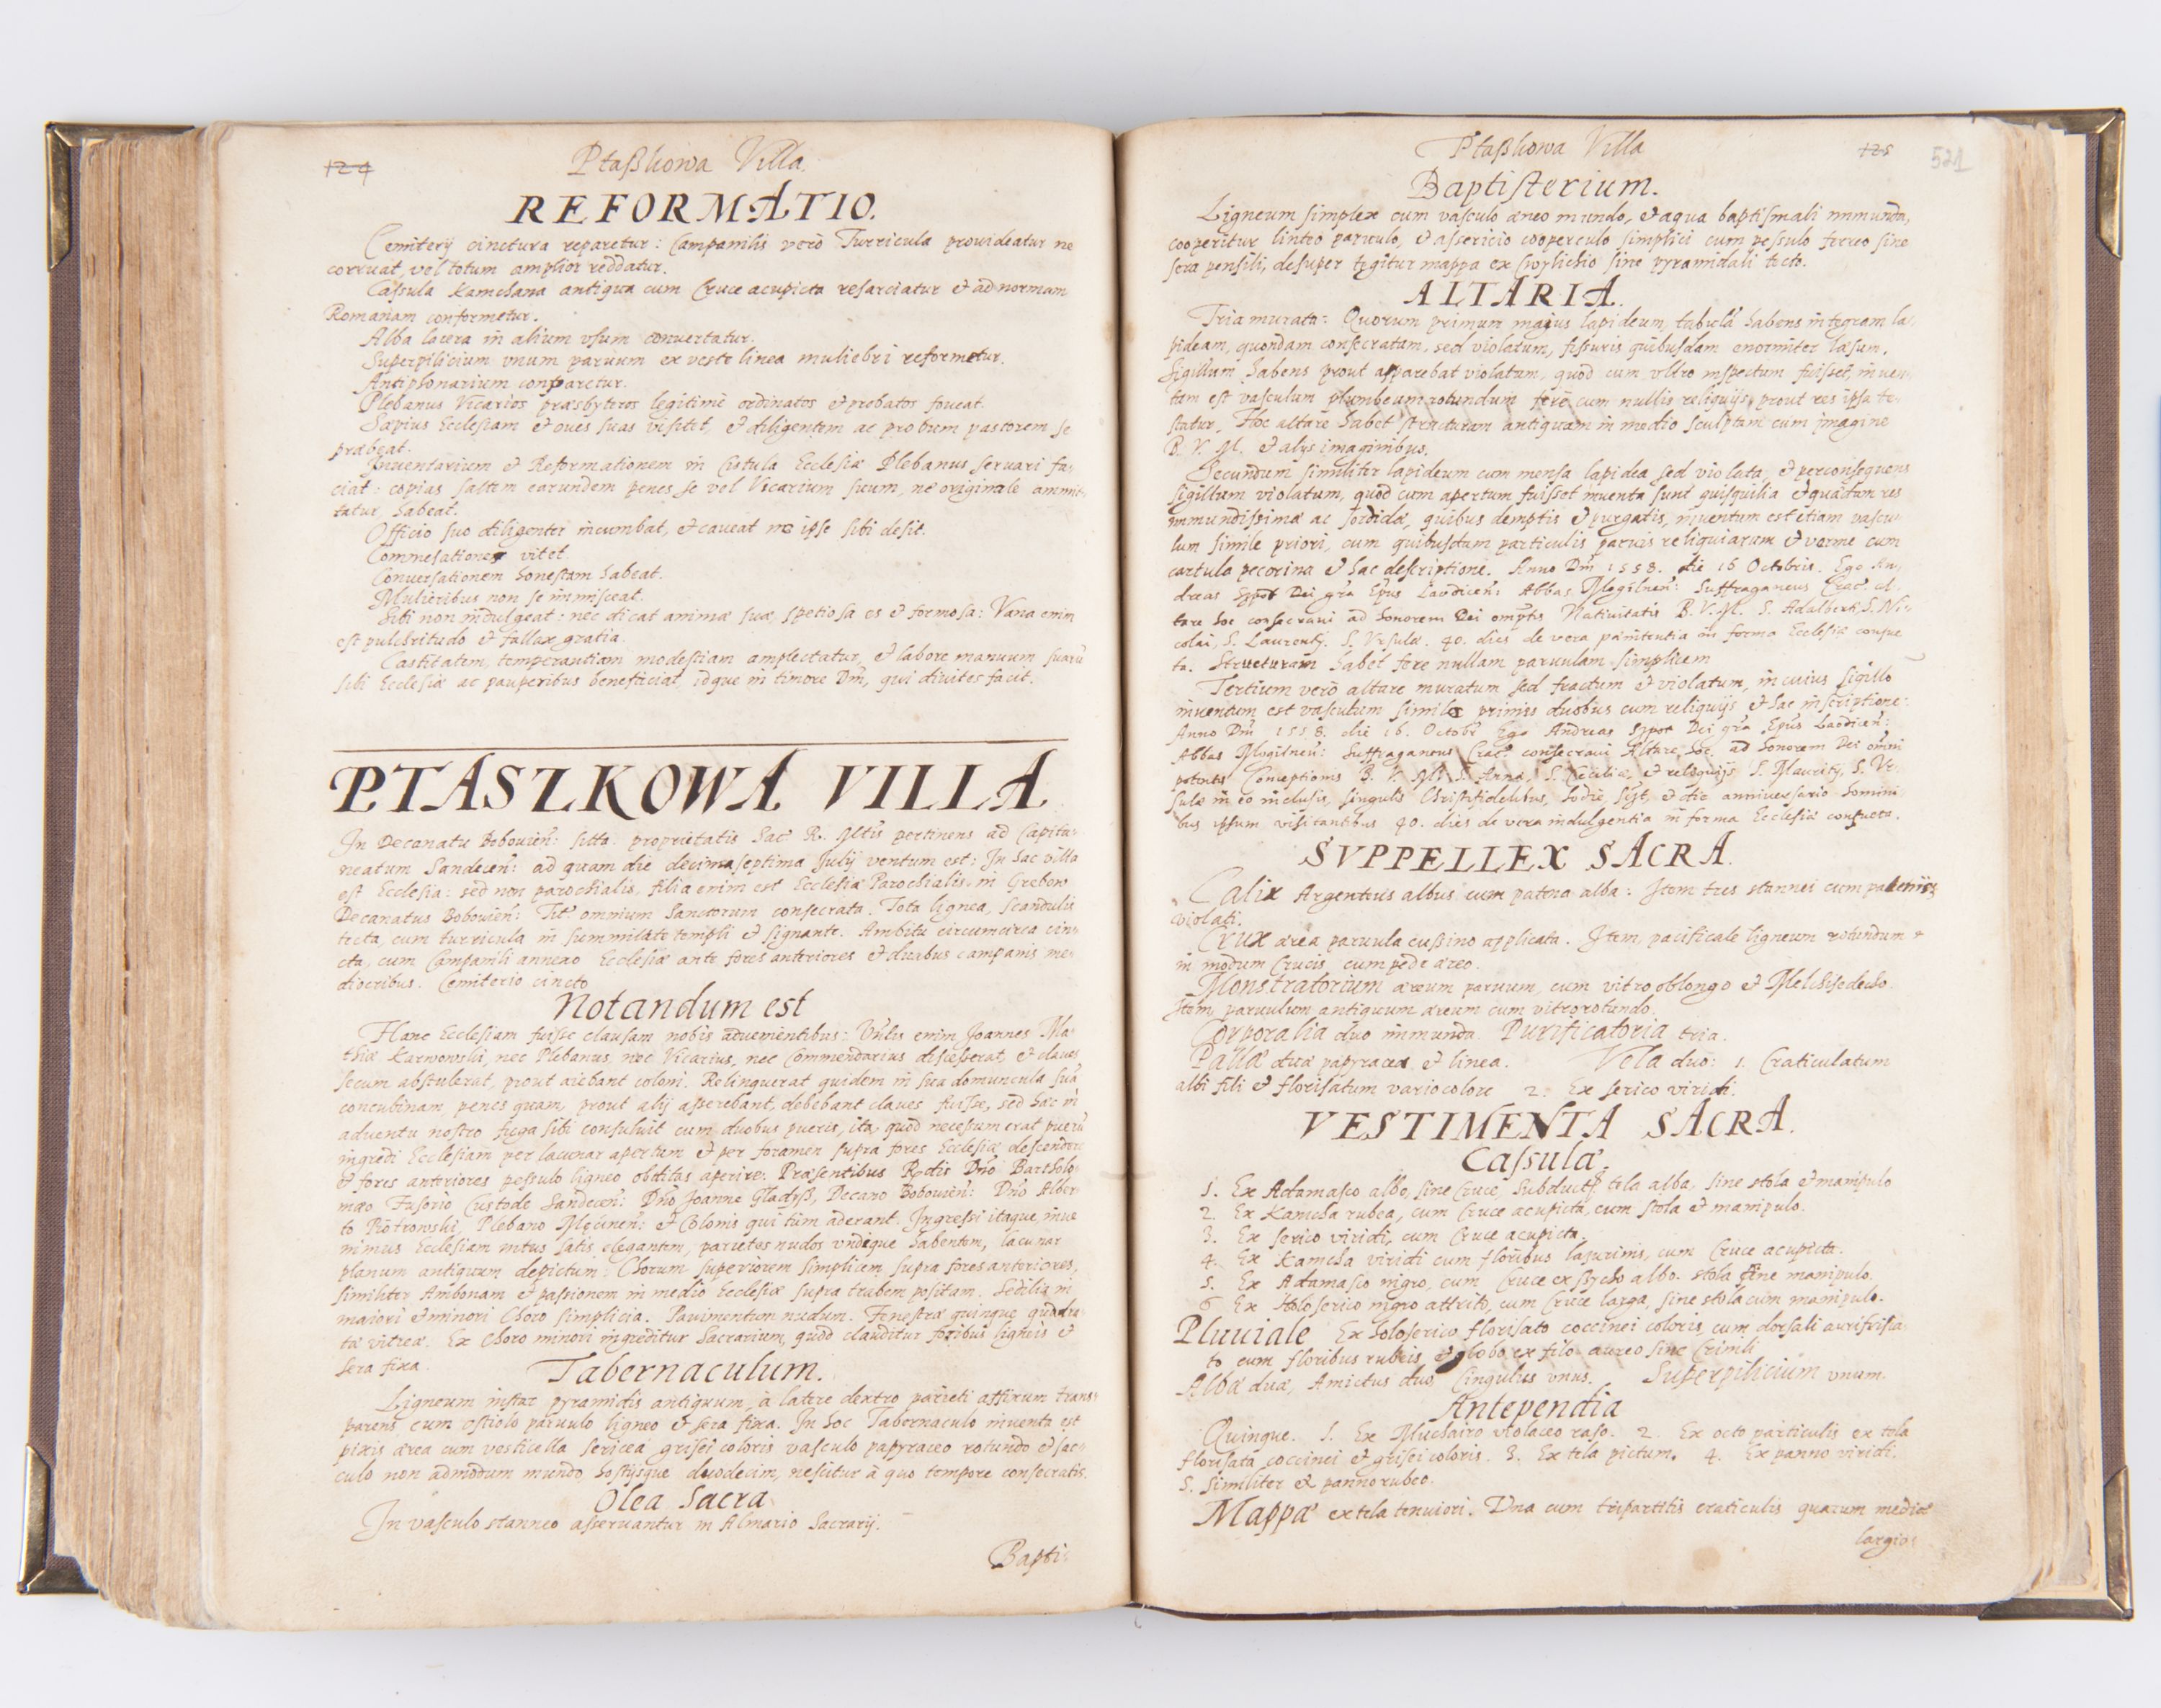 124
Ptaßkowa Villa.
REFORMATIO.
Cemiterij cinctura reparetur: Campanilis verò Turricula prouideatur ne
corruat, vel totum amplior reddatur.
Casula Kamchana antiqua cum Cruce acupicta resarciatur et ad normam
Romanam conformetur.
Alba lacera in alium vsum conuertatur.
Superpilicium vnum paruum ex veste linea muliebri reformetur.
Antiphonarium comparetur.
Plebanus Vicarios præsbyteros legitimè ordinatos et probatos foueat.
Sæpius Ecclesiam et oues suas visitet, et diligentem ac probum pastorem se
præbeat.
Inuentarium et Reformationem in Cistula Ecclesiæ Plebanus seruari fa:
ciat: copias saltem earundem penes se vel Vicarium suum, ne originale ammit:
tatur, habeat.
Officio suo diligenter incumbat, et caueat ne ipse sibi desit.
Commesationes vitet.
Conuersationem honestam habeat.
Mulieribus non se immisceat.
Sibi non indulgeat: nec dicat animæ suæ, spetiosa es et formosa: Vana enim
est pulchritudo et fallax gratia.
Castitatem, temperantiam modestiam amplectatur, et labore manuum suarū
sibi Ecclesiæ ac pauperibus beneficiat idque in timore Dm̄, qui diuites facit.
PTASZKOWA VILLA
In Decanatu Bobouien̄: sitta. proprietatis Sac R. Mtis pertinens ad Capita:
neatum Sandecen̄: ad quam die decimaseptima Julij ventum est: In hac villa
est Ecclesia: sed non parochialis, filia enim est Ecclesiæ Parochialis in Grebow
Decanatus Bobouien̄: Tit: omnium Sanctorum consecrata. Tota lignea, scandulis
tecta, cum turricula in summitate templi et signante. Ambitu circumcirca cin:
cta, cum Campanili annexo Ecclesiæ ante fores anteriores et duabus campanis me:
diocribus. Cemiterio cincto
Notandum est
Hanc Ecclesiam fuisse clausam nobis aduenientibus: Vitus enim Joannes Ma:
thiæ Karwowski, nec Plebanus, nec Vicarius, nec Commendarius discesserat, et claues
secum abstulerat, prout aiebant coloni. Relinquerat quidem in sua domuncula suā
concubinam penes quam, prout alij asserebant, debebant claues fuisse, sed hæc in
aduentu nostro fuga sibi consuluit cum duobus pueris, ita, quòd necesum erat puerū
ingredi Ecclesiam per lacunar apertum et per foramen supra fores Ecclesiæ descendere
et fores anteriores pessulo ligneo obditas aperire. Præsentibus Rndis Dn̄o Bartholo:
mæo Fusorio Custode Sandecen̄: Dn̄o Joanne Gladysz, Decano Bobouien̄: Dn̄o Alber:
to Piotrowski, Plebano Męcinen̄: et Colonis qui tùm aderant. Ingressi itaque, inue
nimus Ecclesiam intus satis elegantem, parietes nudos vndique habentem, lacunar
planum antiquum depictum: Chorum superiorem simplicem supra fores anteriores,
similiter Ambonam et passionem in medio Ecclesiæ supra trabem positam. Sedilia in
maiori et minori Choro simplicia. Pauimentum nudum. Fenestræ quinque quadra:
tæ vitreæ. Ex Choro minori ingreditur Sacrarium, quòd clauditur foribus ligneis et
sera fixa.
Tabernaculum.
Ligneum instar pyramidis antiquum, à latere dextro parieti affixum trans:
parens cum ostiolo paruulo ligneo et sera fixa. In hoc Tabernaculo inuenta est
pixis ærea cum vesticella sericea grisei coloris vasculo papyraceo rotundo et sac:
culo non admodum mundo, hostijsque duodecim, nescitur à quo tempore consecratis.
Olea Sacra
In vasculo stanneo asseruantur in Almario Sacrarij.
Bapti:
Ptaßkowa Villa
125
521
Baptisterium.
Ligneum simplex cum vasculo æneo mundo, et aqua baptismali immunda,
cooperitur linteo paruulo, et assericio cooperculo simplici cum pessulo ferreo sine
sera pensili, desuper tegitur mappa ex Czoylichio sine pyramidali tecto.
ALTARIA.
Tria murata: Quorum primum maius lapideum, tabulā habens integram la:
pideam, quondam consecratam, sed violatam, fissuris quibusdam enormiter læsum.
Sigillum habens prout apparebat violatum, quòd cum vltro inspectum fuisset, inuen:
tum est vasculum plumbeum rotundum ferè cum nullis reliquijs, prout res ipsa te:
statur. Hoc altare habet structuram antiquam in medio sculptam cum imagine
B. V. M. et alijs imaginibus.
Secundum similiter lapideum cum mensa lapidea sed violata, et per consequens
sigillum violatum, quòd cum apertum fuisset inuenta sunt quisquilia et quædam res
immundissimæ ac sordidæ, quibus demptis et purgatis, inuentum est etiam vascu:
lum simile priori, cum quibusdam particulis paruis reliquiarum et verme cum
cartula pecorina et hac descriptione. Anno Dm̄ 1558. die 16 Octobris. Ego An:
dreas Szpot Dei grā Epūs Laodicen̄: Abbas Mogilnen̄: Suffraganeus Crac: al
tare hoc consecraui ad honorem Dei omptis Natiuitatis B. V. M. S. Adalberti, S. Ni:
colai, S. Laurentij, S. Vrsulæ. 40. dies de vera pænitentia in forma Ecclesiæ consue
ta. Structuram habet fere nullam paruulam simplicem
Tertium verò altare muratum sed fractum et violatum, in cuius sigillo
inuentum est vasculum simile primis duobus cum reliquijs et hac inscriptione:
Anno Dm̄ 1558. die 16. Octobr Ego Andreas Szpot Dei grā Epūs Laodicen̄:
Abbas Mogilnen̄: Suffraganeus Crac: consecraui Altare hoc ad honorem Dei omni
potentis Conceptionis B. V. M. S. Annæ, S. Ceciliæ, et reliquijs S. Mauritij, S. Vr:
sulæ in eo inclusis, singulis Christifidelibus, hodie, et die anniuersario homini:
bus ipsum visitantibus 40. dies de vera indulgentia in forma Ecclesiæ consueta.
SVPPELLEX SACRA.
Calix Argenteus albus cum patena alba: Item tres stannei cum patenis
violati.
Crux ærea paruula cußino applicata. Item, pacificale ligneum rotundum
in modum Crucis cum pede æreo.
Monstratorium æreum paruum, cum vitro oblongo et Melchisedecho.
Item, paruulum antiquum æreum cum vitro rotundo.
Corporalia duo immunda. Purificatoria tria.
Pallæ duæ papyracea et linea. Vela duo: 1. Craticulatum
albi fili et florisatum vario colore 2. Ex serico viridi.
VESTIMENTA SACRA.
Casulæ.
1. Ex Adamasco albo, sine Cruce, subducta tela alba, sine stola et manipulo
2. Ex Kamcha rubea, cum Cruce acupicta, cum stola et manipulo.
3. Ex serico viridi, cum Cruce acupicta.
4. Ex Kamcha viridi cum floribus lazurinis, cum Cruce acupicta.
5. Ex Adamasco nigro, cum Cruce ex szycho albo. stola sine manipulo.
6 Ex Holoserico nigro attrito, cum Cruce larga, sine stola cum manipulo.
Pluuiale Ex holoserico florisato coccinei coloris, cum dorsali aurifrisia
to cum floribus rubeis et globo ex filo aureo sine Crimli
Albæ duæ, Amictus duo, Cingulus vnus. Superpilicium vnum.
Antependia
Quinque. 1. Ex Muchairo violaceo raso. 2. Ex octo particulis ex tela
florisata coccinei et grisei coloris. 3. Ex tela pictum. 4. Ex panno viridi.
5. Similiter ex panno rubeo.
Mappæ ex tela tenuiori. Vna cum tripartitis craticulis quarum mediæ
largio: